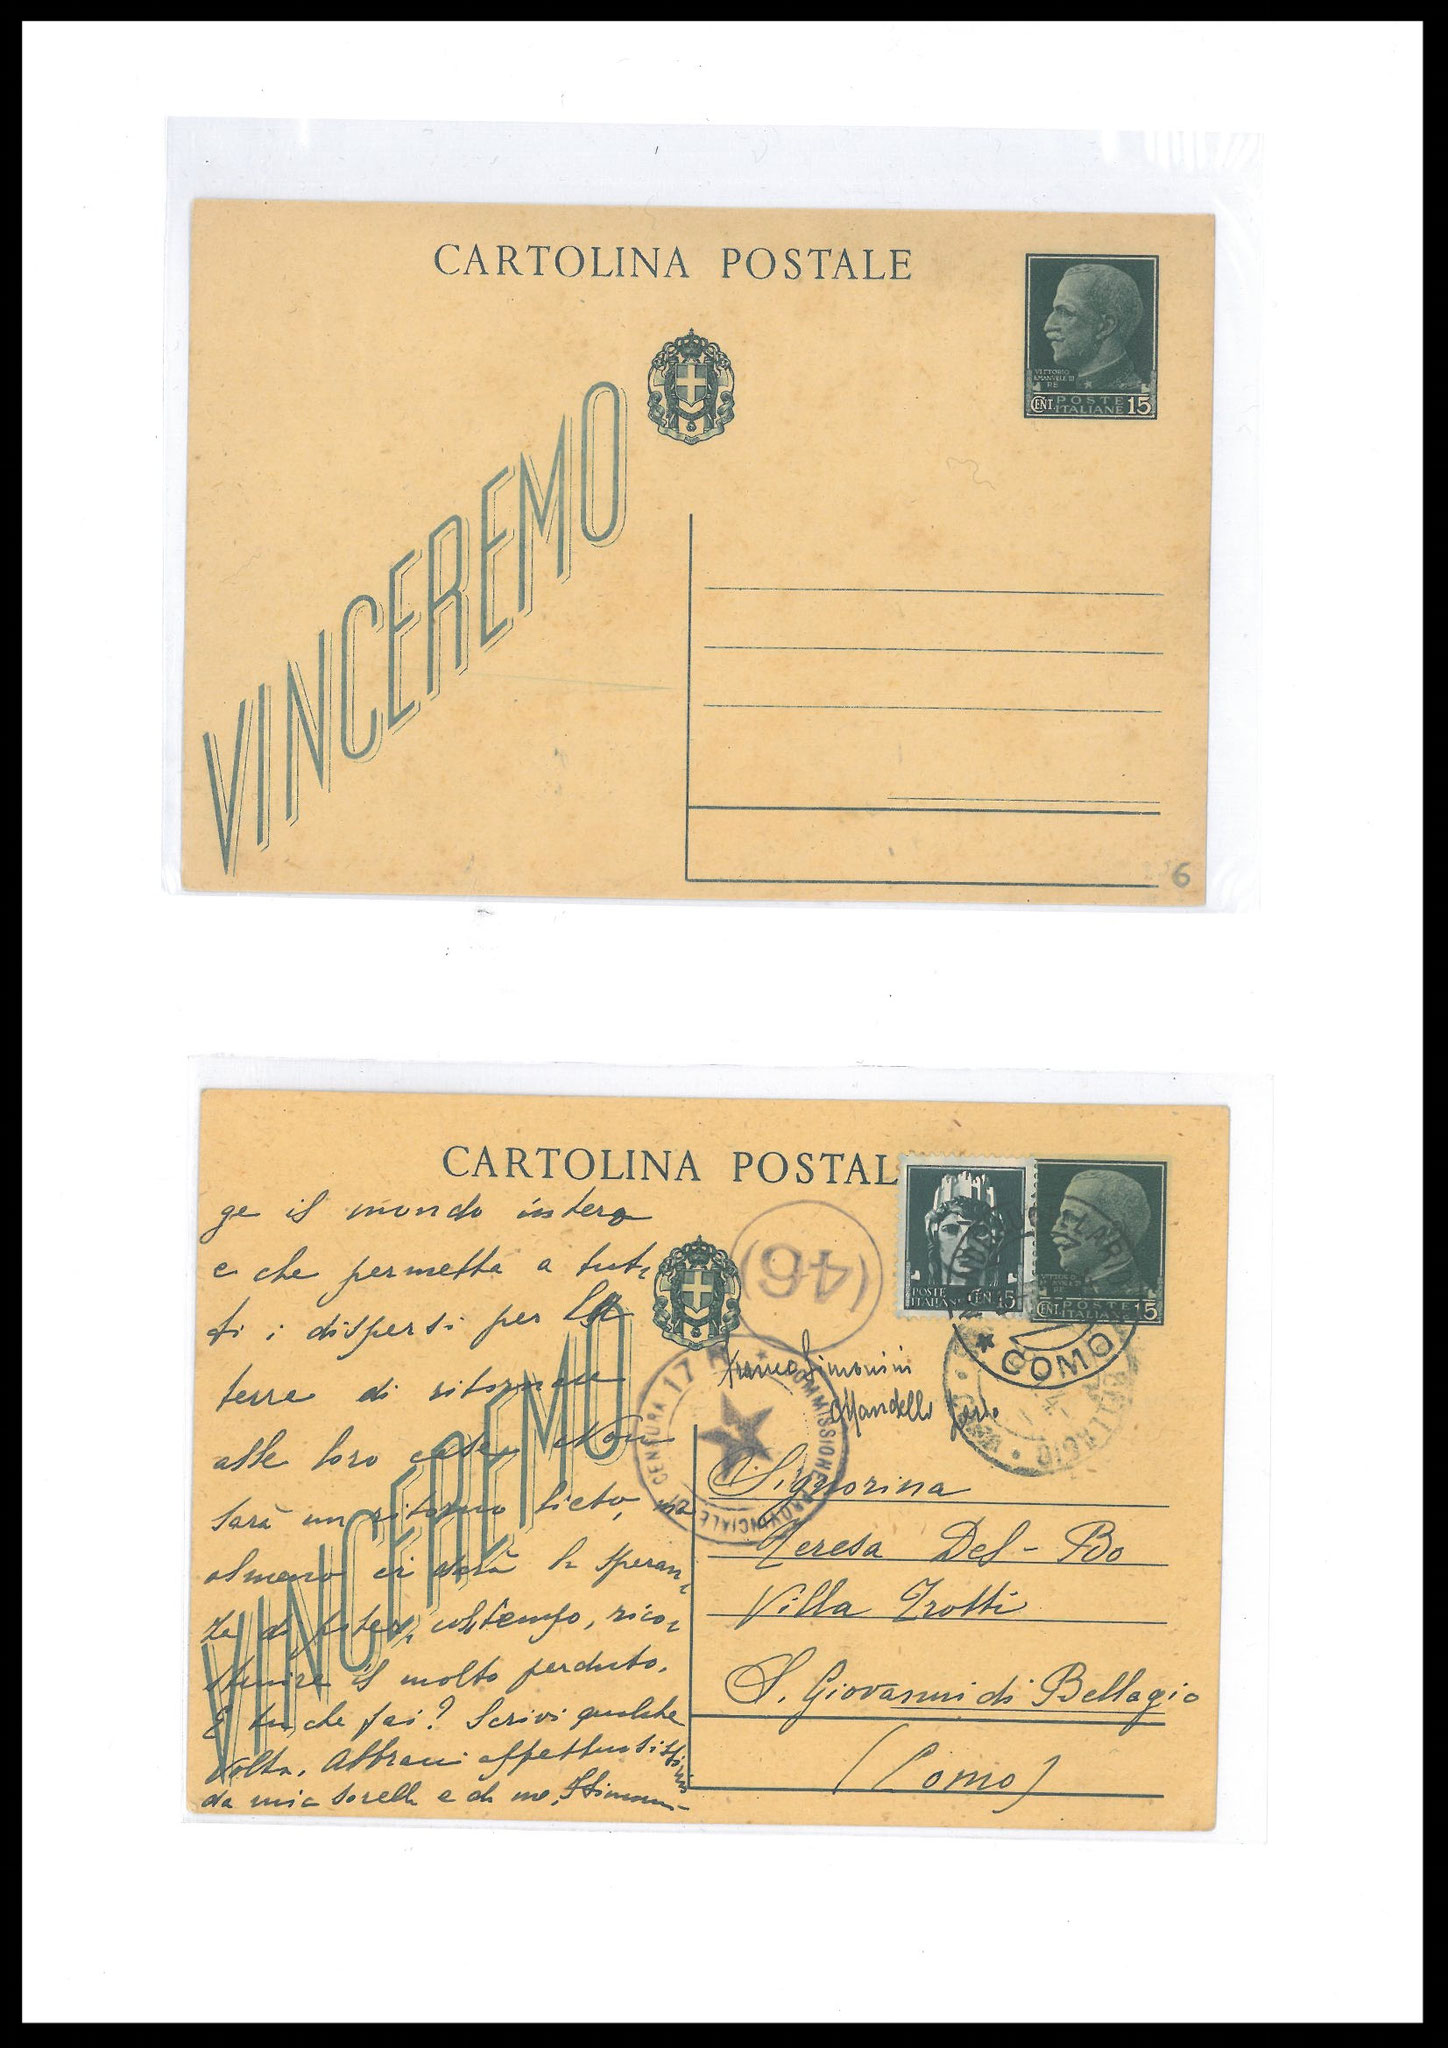 CARTOLINA POSTALE
VITTORIO
EMANUELE III
RE
CENT. POSTE ITALIANE 15
VINCEREMO
6
CARTOLINA POSTAL
POSTE ITALIANE CENT. 15
CENT. POSTE ITALIANE 15
COMO
(46)
COMMISSIONE PROVINCIALE DI CENSURA 17
VINCEREMO
ge il mondo intero
e che permetta a tut-
ti i dispersi per la
terra di ritornare
alle loro case. Non
sarà un ritorno lieto, ma
almeno ci darà la speran-
za di poter, col tempo, rico-
struire il molto perduto.
E tu, che fai? Scrivi qualche
volta. Abbracci affettuosissimi
da mia sorella e da me,
Franco Simonini
Mandello
Signorina
Teresa Del-Bo
Villa Trotti
S. Giovanni di Bellagio
(Como)